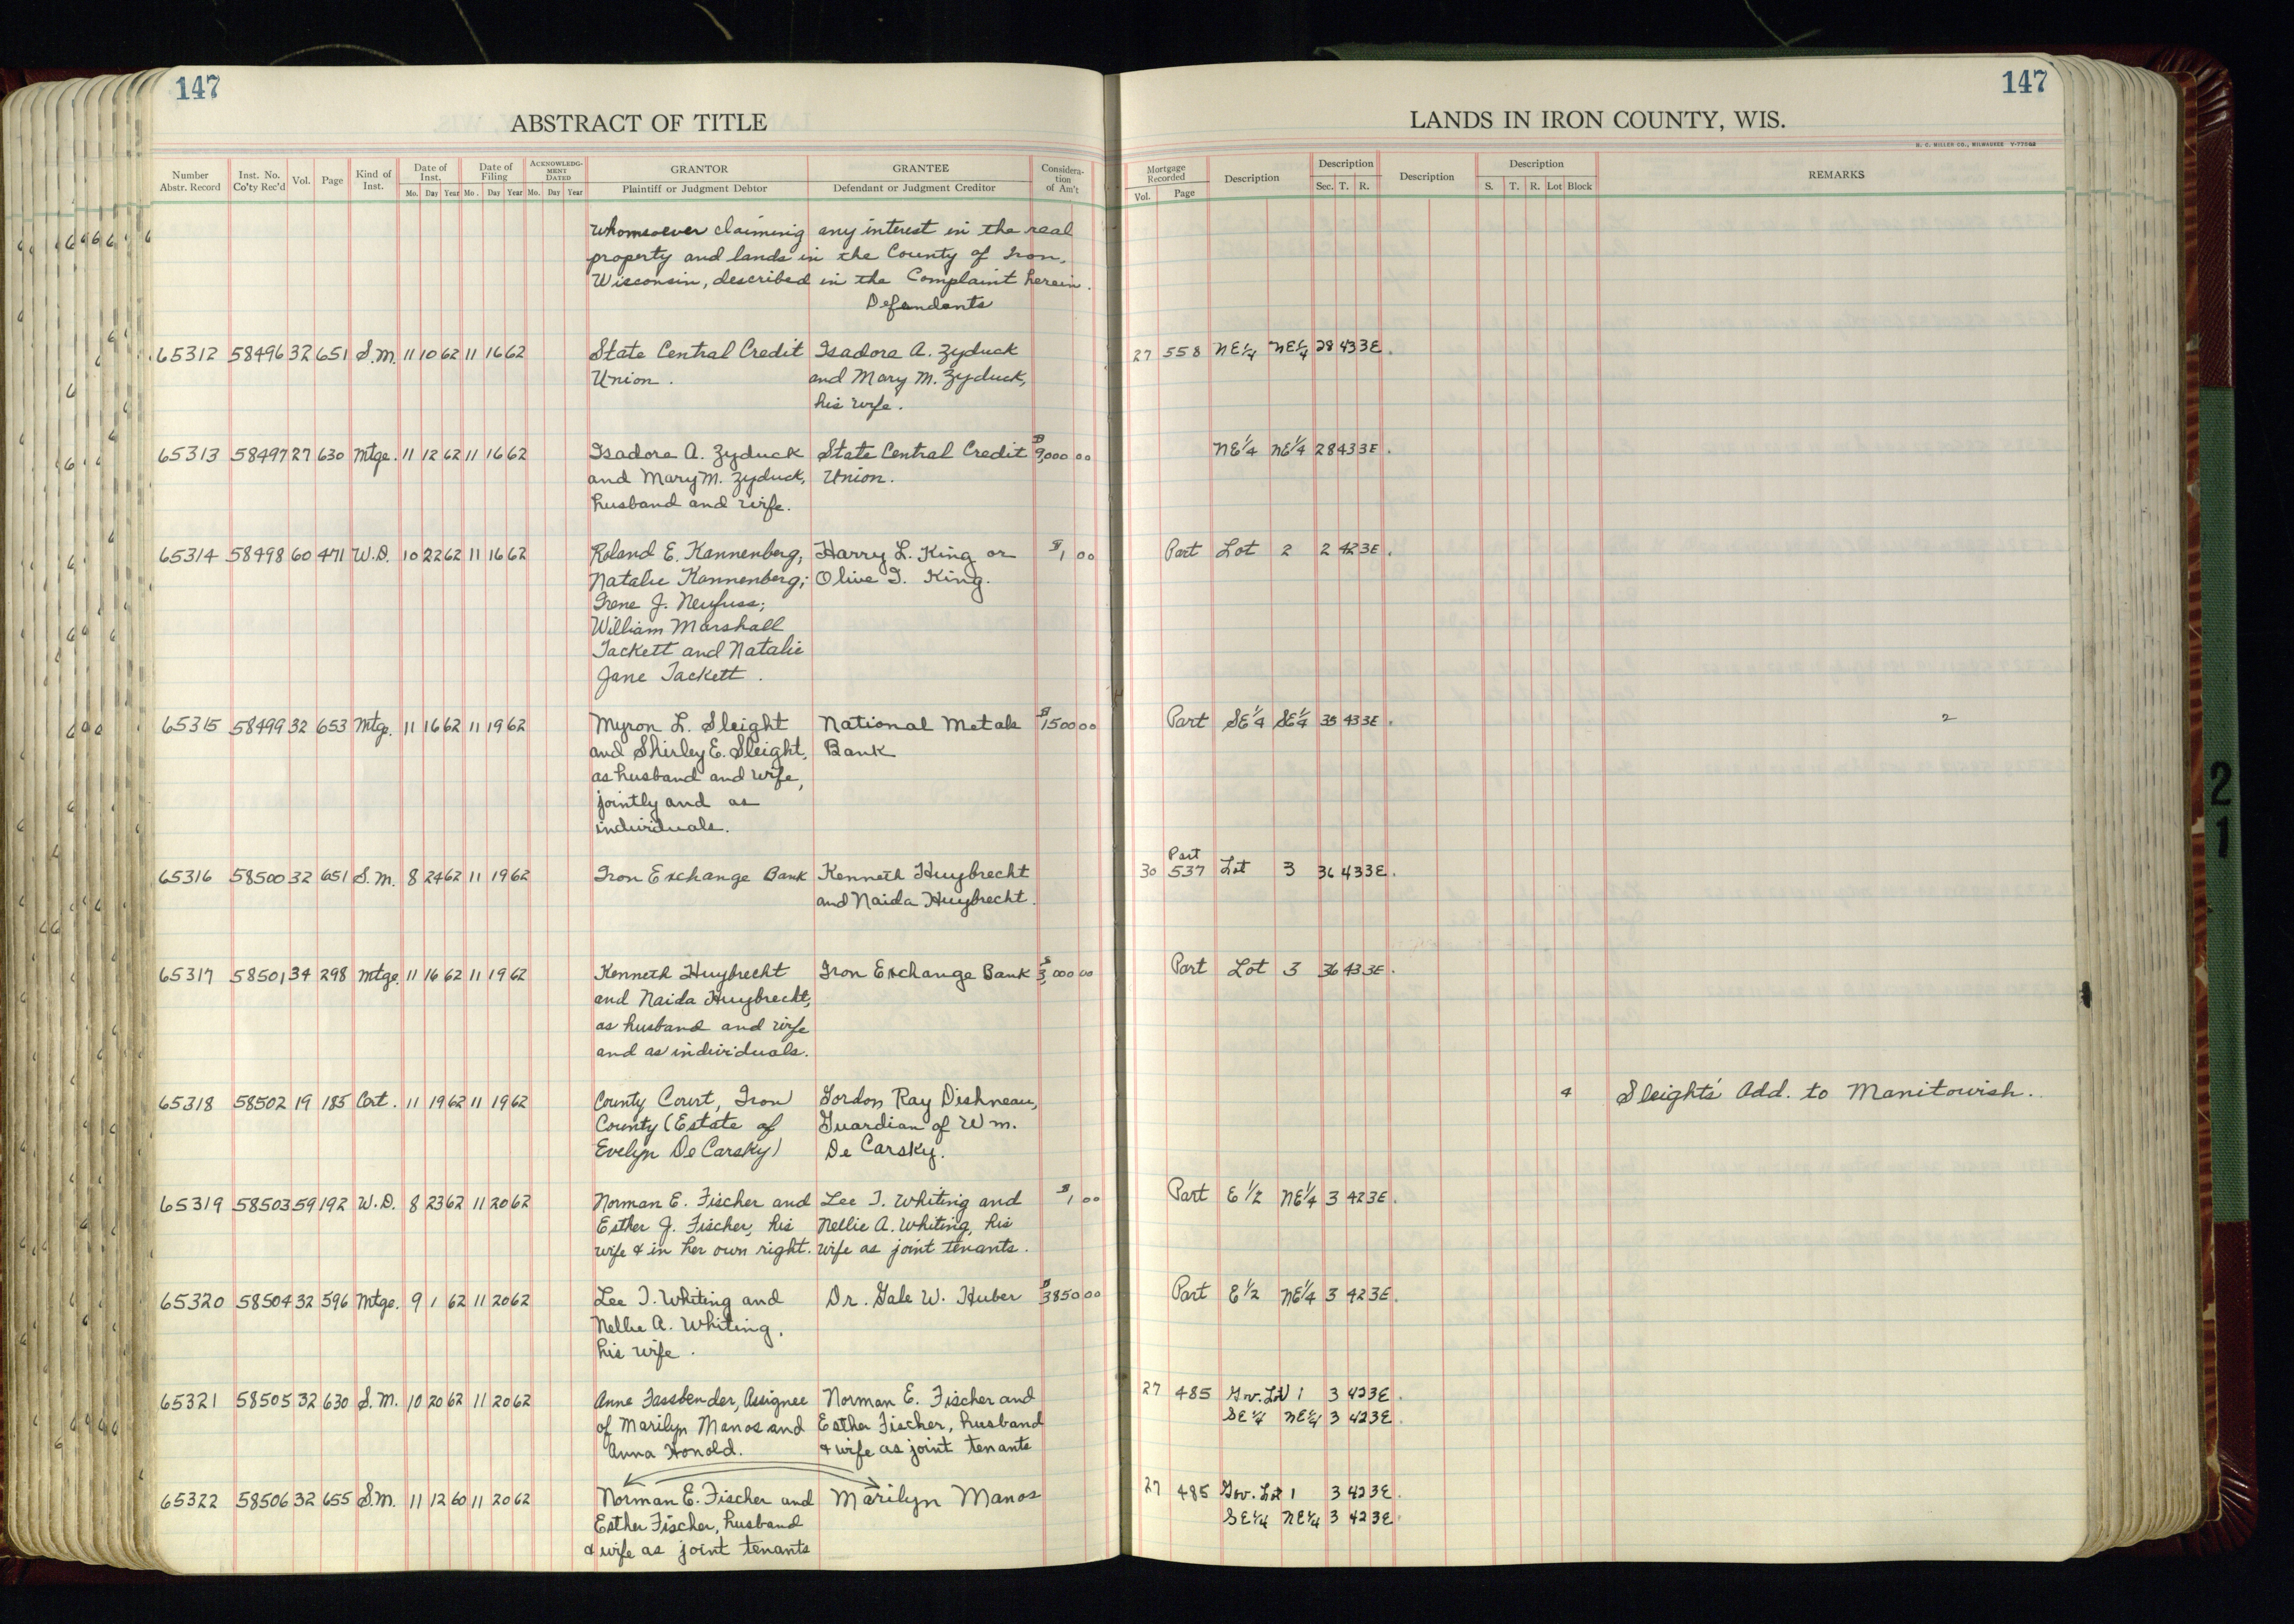 147
ABSTRACT OF TITLE
Number Abstr. Record | Inst. No. Co'ty Rec'd | Vol. | Page | Kind of Inst. | Date of Inst. Mo. Day Year | Date of Filing Mo. Day Year | ACKNOWLEDGMENT DATED Mo. Day Year | GRANTOR Plaintiff or Judgment Debtor | GRANTEE Defendant or Judgment Creditor | Consideration of Am't
whomsoever claiming any interest in the real
property and lands in the County of Iron,
Wisconsin, described in the Complaint herein.
Defendants
65312 58496 32 651 S.M. 11 10 62 11 16 62 State Central Credit Isadore A. Zyduck
Union. and Mary M. Zyduck,
his wife.
65313 58497 27 630 Mtge. 11 12 62 11 16 62 Isadore A. Zyduck State Central Credit $9,000 00
and Mary M. Zyduck, Union.
husband and wife.
65314 58498 60 471 W.D. 10 22 62 11 16 62 Roland E. Kannenberg, Harry L. King or $1 00
Natalie Kannenberg; Olive I. King.
Irene J. Neufuss;
William Marshall
Tackett and Natalie
Jane Tackett.
65315 58499 32 653 Mtge. 11 16 62 11 19 62 Myron L. Sleight National Metals $1500 00
and Shirley E. Sleight, Bank
as husband and wife,
jointly and as
individuals.
65316 58500 32 651 S.M. 8 24 62 11 19 62 Iron Exchange Bank Kenneth Huybrecht
and Naida Huybrecht.
65317 58501 34 298 Mtge. 11 16 62 11 19 62 Kenneth Huybrecht Iron Exchange Bank $3,000 00
and Naida Huybrecht,
as husband and wife
and as individuals.
65318 58502 19 185 Cert. 11 19 62 11 19 62 County Court, Iron Gordon Ray Dishneau,
County (Estate of Guardian of Wm.
Evelyn De Carsky) De Carsky.
65319 58503 59 192 W.D. 8 23 62 11 20 62 Norman E. Fischer and Lee T. Whiting and $1 00
Esther J. Fischer, his Nellie A. Whiting, his
wife & in her own right. wife as joint tenants.
65320 58504 32 596 Mtge. 9 1 62 11 20 62 Lee T. Whiting and Dr. Gale W. Huber $3850 00
Nellie A. Whiting,
his wife.
65321 58505 32 630 S.M. 10 20 62 11 20 62 Anne Fassbender, Assignee Norman E. Fischer and
of Marilyn Manos and Esther Fischer, husband
Anna Honold. & wife as joint tenants
65322 58506 32 655 S.M. 11 12 60 11 20 62 Norman E. Fischer and Marilyn Manos
Esther Fischer, husband
& wife as joint tenants
147
LANDS IN IRON COUNTY, WIS.
H. C. MILLER CO., MILWAUKEE
Mortgage Recorded Vol. Page | Description | Description Sec. T. R. | Description | Description S. T. R. Lot Block | REMARKS
27 558 NE¼ NE¼ 28 43 3E.
NE¼ NE¼ 28 43 3E.
Part Lot 2 2 42 3E.
Part SE¼ SE¼ 35 43 3E. 2
Part
30 537 Lot 3 36 43 3E.
Part Lot 3 36 43 3E.
4 Sleight's Add. to Manitowish.
Part E½ NE¼ 3 42 3E.
Part E½ NE¼ 3 42 3E.
27 485 Gov. Lot 1 3 42 3E.
SE¼ NE¼ 3 42 3E.
27 485 Gov. Lot 1 3 42 3E.
SE¼ NE¼ 3 42 3E.
21